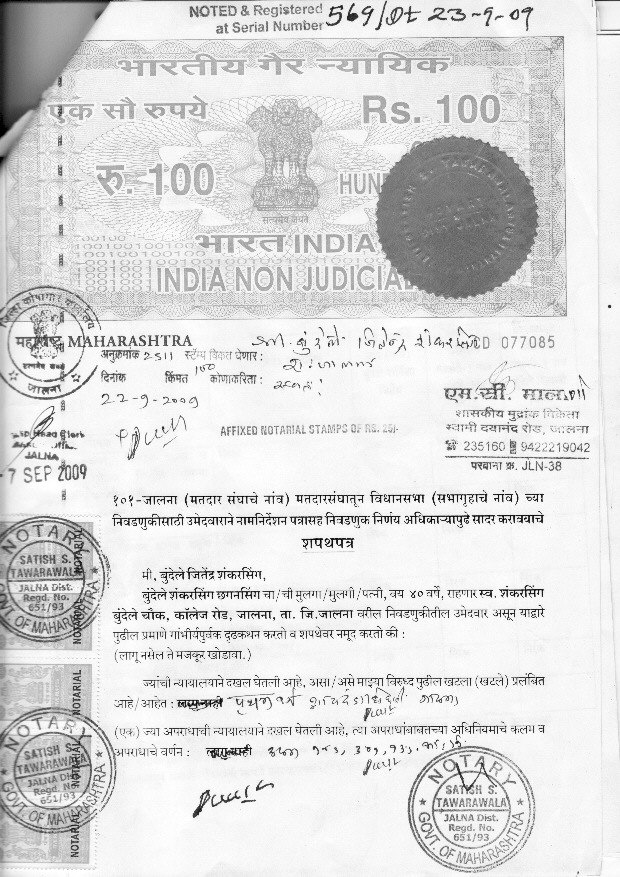 NOTED & Registered
at Serial Number 569/Dt 23-9-09
भारतीय गैर न्यायिक
एक सौ रुपये Rs. 100
रु. 100
सत्यमेव जयते
भारत INDIA
INDIA NON JUDICIAL
महाराष्ट्र MAHARASHTRA
CD 077085
अनुक्रमांक 2511 स्टॅम्प विकत घेणार :
दिनांक किंमत 100 कोणाकरिता :
22-9-2009
जालना
JALNA
- 7 SEP 2009
AFFIXED NOTARIAL STAMPS OF RS. 25/-
शासकीय मुद्रांक विक्रेता
स्वामी दयानंद रोड, जालना
235160 9422219042
परवाना क्र. JLN-38
१०१-जालना (मतदार संघाचे नांव) मतदारसंघातून विधानसभा (सभागृहाचे नांव) च्या
निवडणुकीसाठी उमेदवाराने नामनिर्देशन पत्रासह निवडणुक निर्णय अधिकाऱ्यापुढे सादर करावयाचे
शपथपत्र
मी, बुंदेले जितेंद्र शंकरसिंग,
बुंदेले शंकरसिंग छगनसिंग चा/ची मुलगा/मुलगी/पत्नी, वय ४० वर्षे, राहणार स्व. शंकरसिंग
बुंदेले चौक, कॉलेज रोड, जालना, ता. जि.जालना वरील निवडणुकीतील उमेदवार असून याद्वारे
पुढील प्रमाणे गांभीर्यपुर्वक दृढकथन करतो व शपथेवर नमूद करतो की :
(लागू नसेल ते मजकूर खोडावा.)
ज्यांची न्यायालयाने दखल घेतली आहे, असा/असे माझ्या विरुध्द पुढील खटला (खटले) प्रलंबित
आहे/आहेत :
(एक) ज्या अपराधाची न्यायालयाने दखल घेतली आहे, त्या अपराधांबाबतच्या अधिनियमाचे कलम व
अपराधाचे वर्णन :
NOTARY
SATISH S.
TAWARAWALA
JALNA Dist.
Regd. No.
651/93
GOVT. OF MAHARASHTRA
NOTARIAL
NOTARIAL
NOTARY
SATISH S.
TAWARAWALA
JALNA Dist.
Regd. No.
651/93
GOVT. OF MAHARASHTRA
NOTARIAL
NOTARY
SATISH S.
TAWARAWALA
JALNA Dist.
Regd. No.
651/93
GOVT. OF MAHARASHTRA